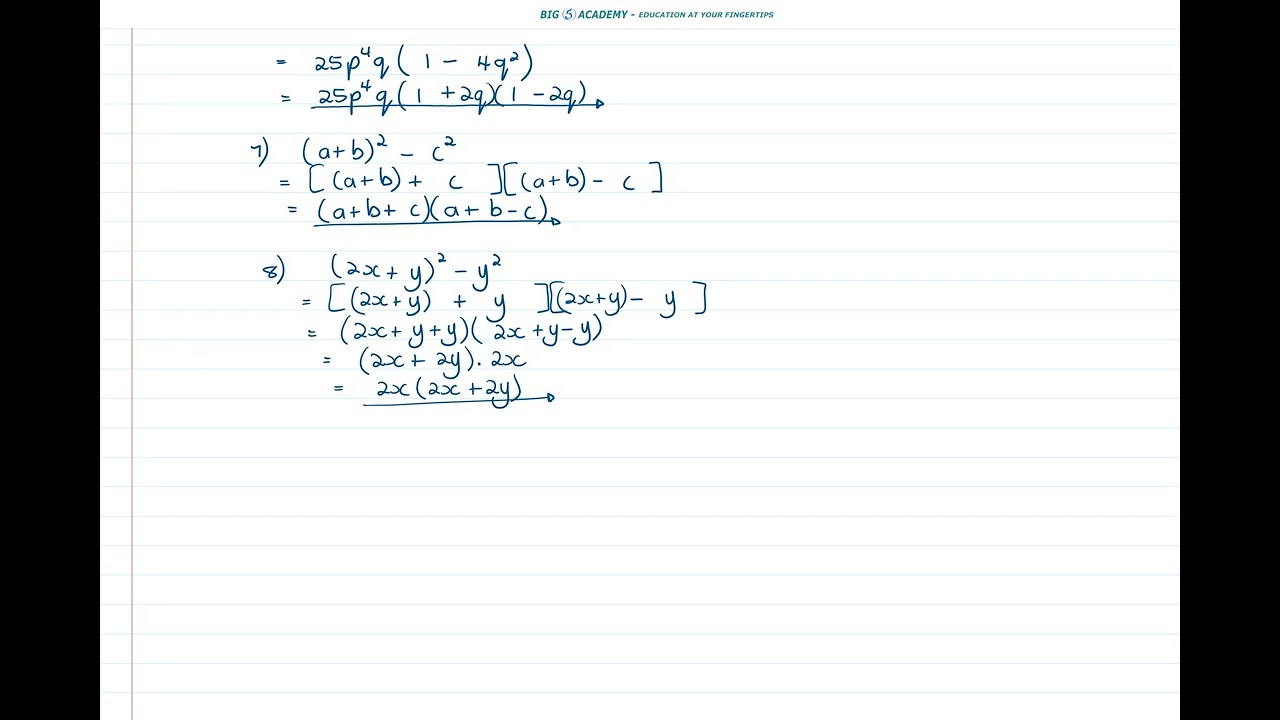 BIG 5 ACADEMY - EDUCATION AT YOUR FINGERTIPS
= 25p⁴q ( 1 - 4q²)
= 25p⁴q ( 1 + 2q)(1 - 2q)
7) (a+b)² - c²
= [(a+b) + c ][(a+b) - c ]
= (a+b+c)(a+b-c)
8) (2x+y)² - y²
= [(2x+y) + y ][(2x+y) - y ]
= (2x+y+y)(2x+y-y)
= (2x+2y). 2x
= 2x(2x+2y)